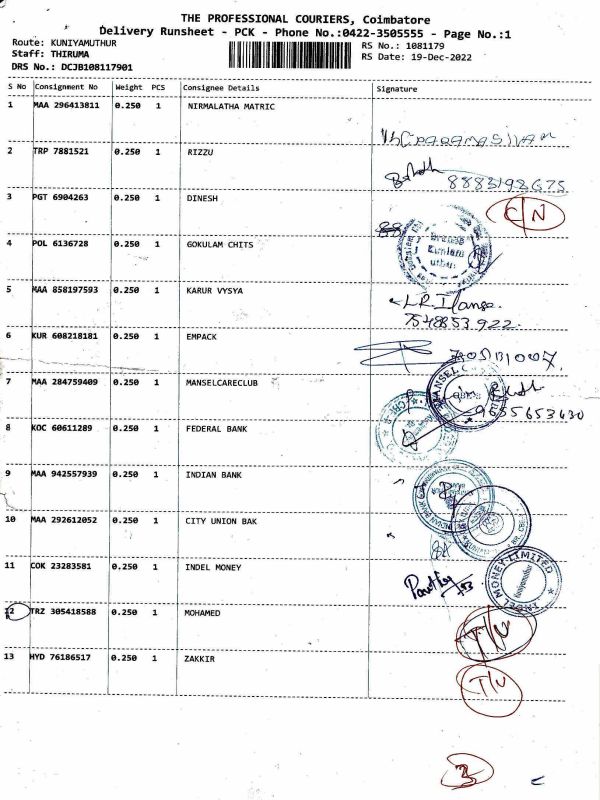 THE PROFESSIONAL COURIERS, Coimbatore
Delivery Runsheet - PCK - Phone No.:0422-3505555 - Page No.:1
Route: KUNIYAMUTHUR
Staff: THIRUMA
DRS No.: DCJB108117901
RS No.: 1081179
RS Date: 19-Dec-2022
S No Consignment No Weight PCS Consignee Details Signature
1 MAA 296413811 0.250 1 NIRMALATHA MATRIC
2 TRP 7881521 0.250 1 RIZZU
8883198675
3 PGT 6904263 0.250 1 DINESH
C/N
4 POL 6136728 0.250 1 GOKULAM CHITS
5 MAA 858197593 0.250 1 KARUR VYSYA
7548853922
6 KUR 608218181 0.250 1 EMPACK
7 MAA 284759409 0.250 1 MANSELCARECLUB
9655653430
8 KOC 60611289 0.250 1 FEDERAL BANK
9 MAA 942557939 0.250 1 INDIAN BANK
10 MAA 292612052 0.250 1 CITY UNION BAK
11 COK 23283581 0.250 1 INDEL MONEY
INDEL MONEY LIMITED
12 TRZ 305418588 0.250 1 MOHAMED
T/N
13 HYD 76186517 0.250 1 ZAKKIR
T/N
3